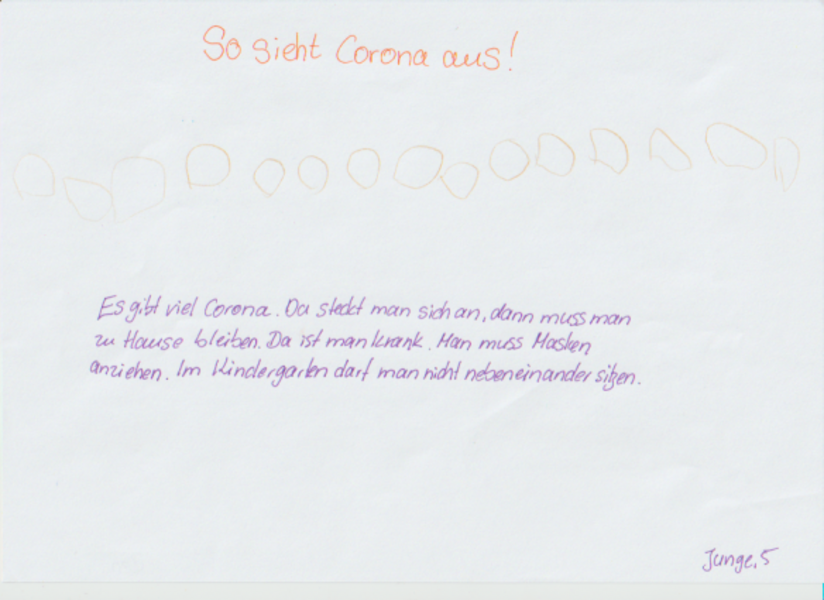 So sieht Corona aus!
Es gibt viel Corona. Da steckt man sich an, dann muss man
zu Hause bleiben. Da ist man krank. Man muss Masken
anziehen. Im Kindergarten darf man nicht nebeneinander sitzen.
Junge, 5